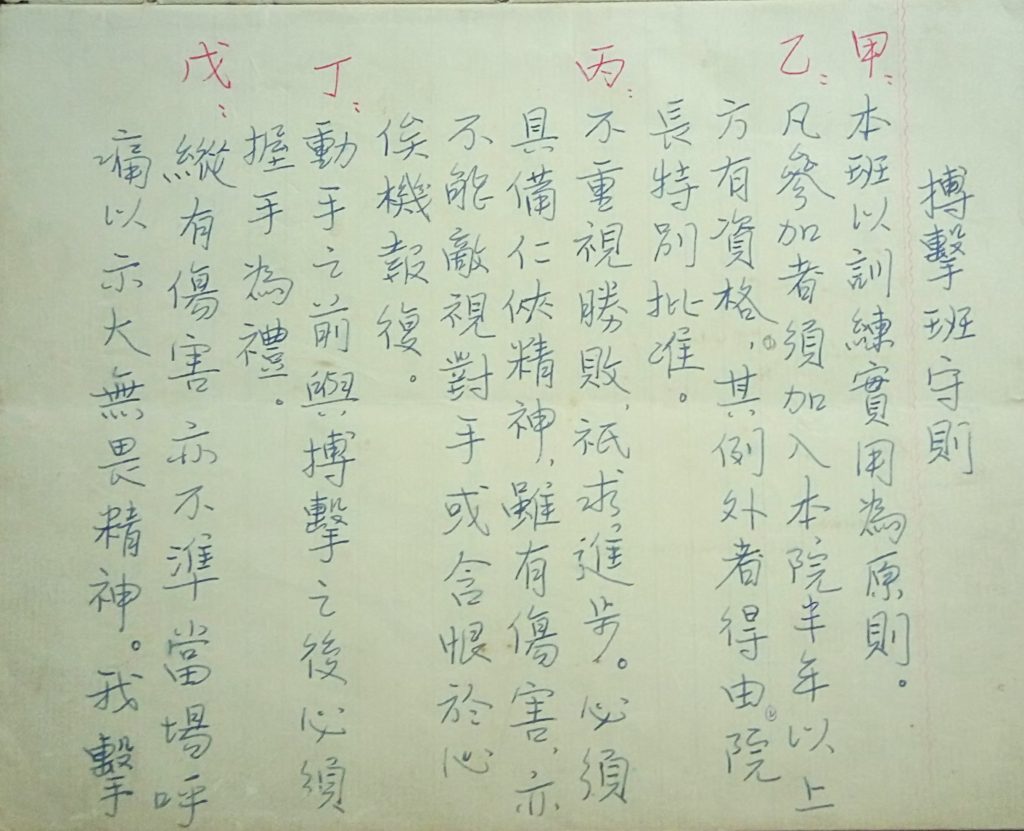 搏擊班守則
甲：本班以訓練實用為原則。
乙：凡參加者須加入本院半年以上
方有資格，其例外者得由院
長特別批准。
丙：不重視勝敗，祇求進步。必須
具備仁俠精神，雖有傷害，亦
不能敵視對手或含恨於心
俟機報復。
丁：動手之前與搏擊之後必須
握手為禮。
戊：縱有傷害亦不準當場呼
痛以示大無畏精神。我擊